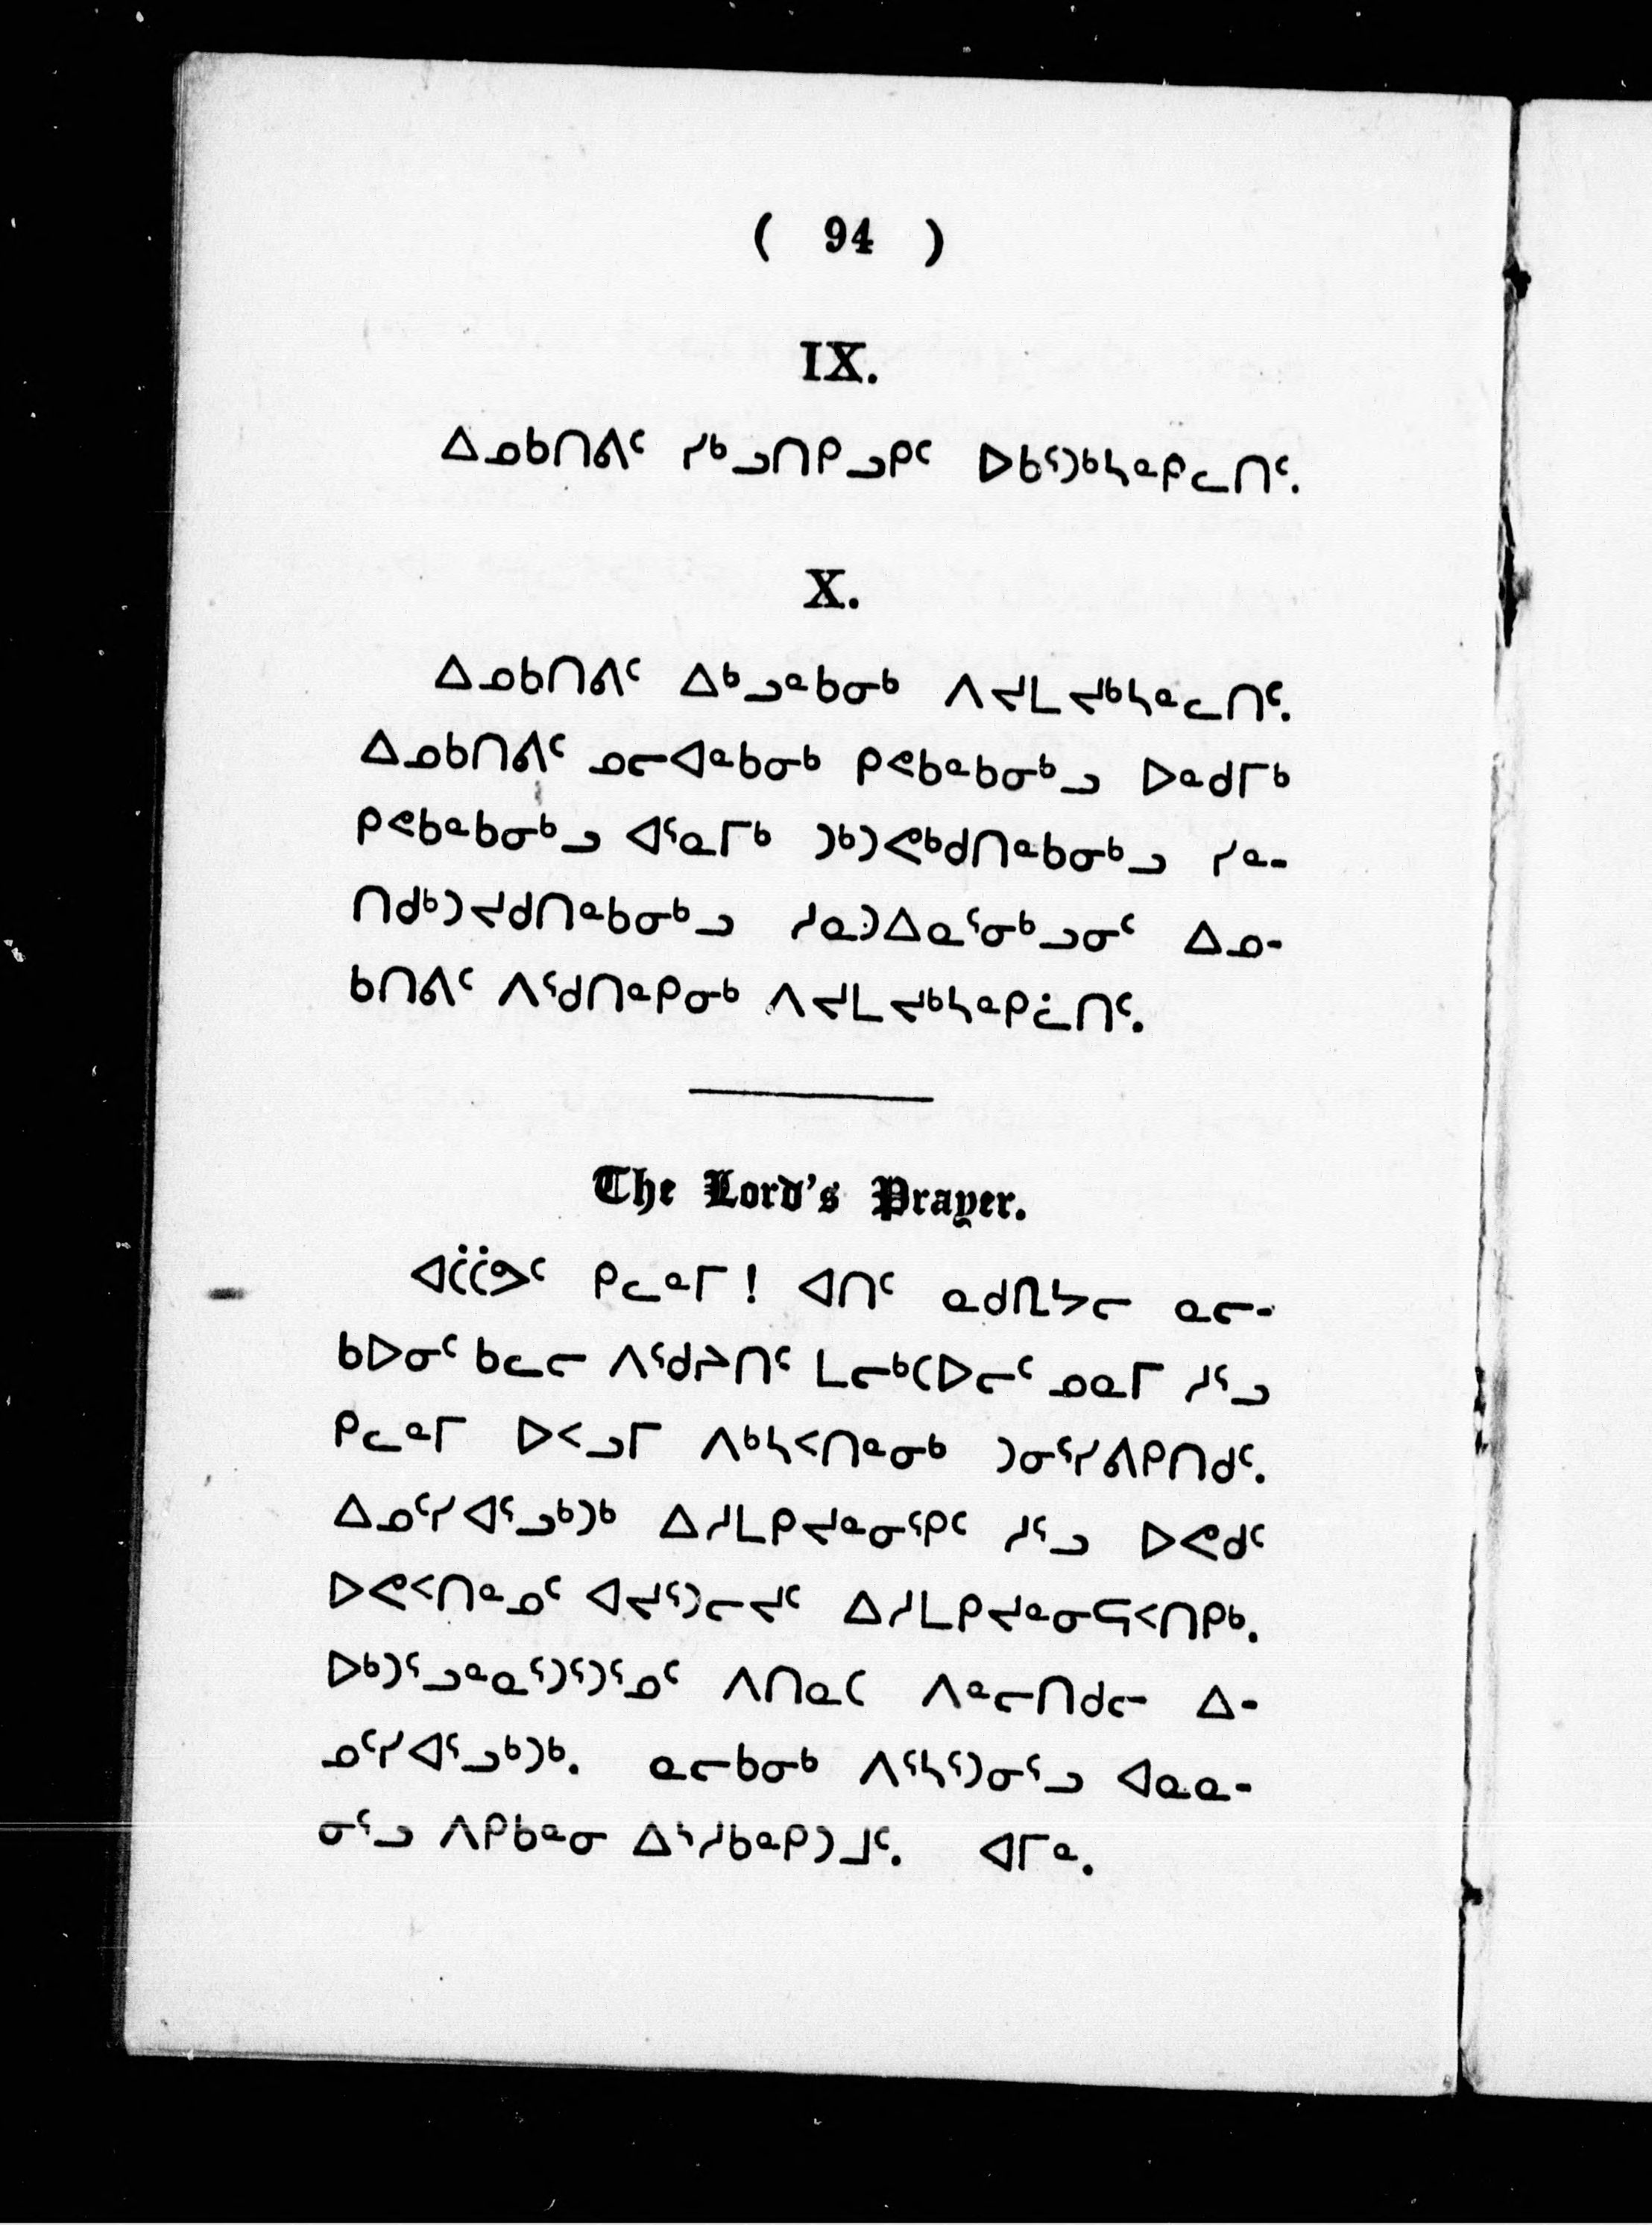 ( 94 )
IX.
ᐃᓄᑲᑎᕕᑦ ᓯᒃᓗᑎᑭᓗᑭᑦ ᐅᑲᕐᑐᒃᓴᓐᑭᓚᑎᑦ.
X.
ᐃᓄᑲᑎᕕᑦ ᐃᒃᓗᓐᑲᓂᒃ ᐱᔪᒪᔪᒃᓴᓐᓚᑎᑦ.
ᐃᓄᑲᑎᕕᑦ ᓄᓕᐊᓐᑲᓂᒃ ᑭᕙᑲᓐᑲᓂᒃᓗ ᐅᓐᑯᒥᒃ
ᑭᕙᑲᓐᑲᓂᒃᓗ ᐊᕐᓇᒥᒃ ᑐᒃᑐᕙᒃᑯᑎᓐᑲᓂᒃᓗ ᓯᓐ-
ᑎᑯᒃᑐᔪᑯᑎᓐᑲᓂᒃᓗ ᓱᓇᑐᐃᓇᕐᓂᒃᓗᓂᑦ ᐃᓄ-
ᑲᑎᕕᑦ ᐱᕐᑯᑎᓐᑭᓂᒃ ᐱᔪᒪᔪᒃᓴᓐᑭᓚᑎᑦ.
The Lord's Prayer.
ᐊᑖᑖᕗᑦ ᑭᓚᓐᒥ! ᐊᑎᑦ ᓇᑯᕆᔭᐅᓕ ᓇᓕ-
ᑲᐅᓂᑦ ᑲᓚᓕ ᐱᕐᑯᔨᑎᑦ ᒪᓕᒃᑕᐅᓕᑦ ᓄᓇᒥ ᓱᕐᓗ
ᑭᓚᓐᒥ ᐅᐸᓗᒥ ᐱᒃᓴᐸᑎᓐᓂᒃ ᑐᓂᕐᓯᕕᑭᑎᑯᑦ.
ᐃᓄᑦᓯᐊᕐᓗᒃᑐᒃ ᐃᓱᒪᑭᔪᓐᓂᕐᑭᑦ ᓱᕐᓗ ᐅᕙᑯᑦ
ᐅᕙᑉᑎᓐᓄᑦ ᐊᔪᕐᑐᓕᔪᑦ ᐃᓱᒪᑭᔪᓐᓂᕋᐸᑎᑭᒃ.
ᐅᒃᑐᕐᓗᓐᓇᕐᑐᕐᑐᕐᓄᑦ ᐱᑎᓇᑕ ᐱᓐᓕᑎᑯᓕ ᐃ-
ᓄᑦᓯᐊᕐᓗᒃᑐᒃ. ᓇᓕᑲᓂᒃ ᐱᕐᓴᕐᑐᓂᕐᓗ ᐊᓇᓇ-
ᓂᕐᓗ ᐱᑭᑲᓐᓂ ᐃᓴᓱᑲᓐᑭᑐᒧᑦ. ᐊᒥᓐ.